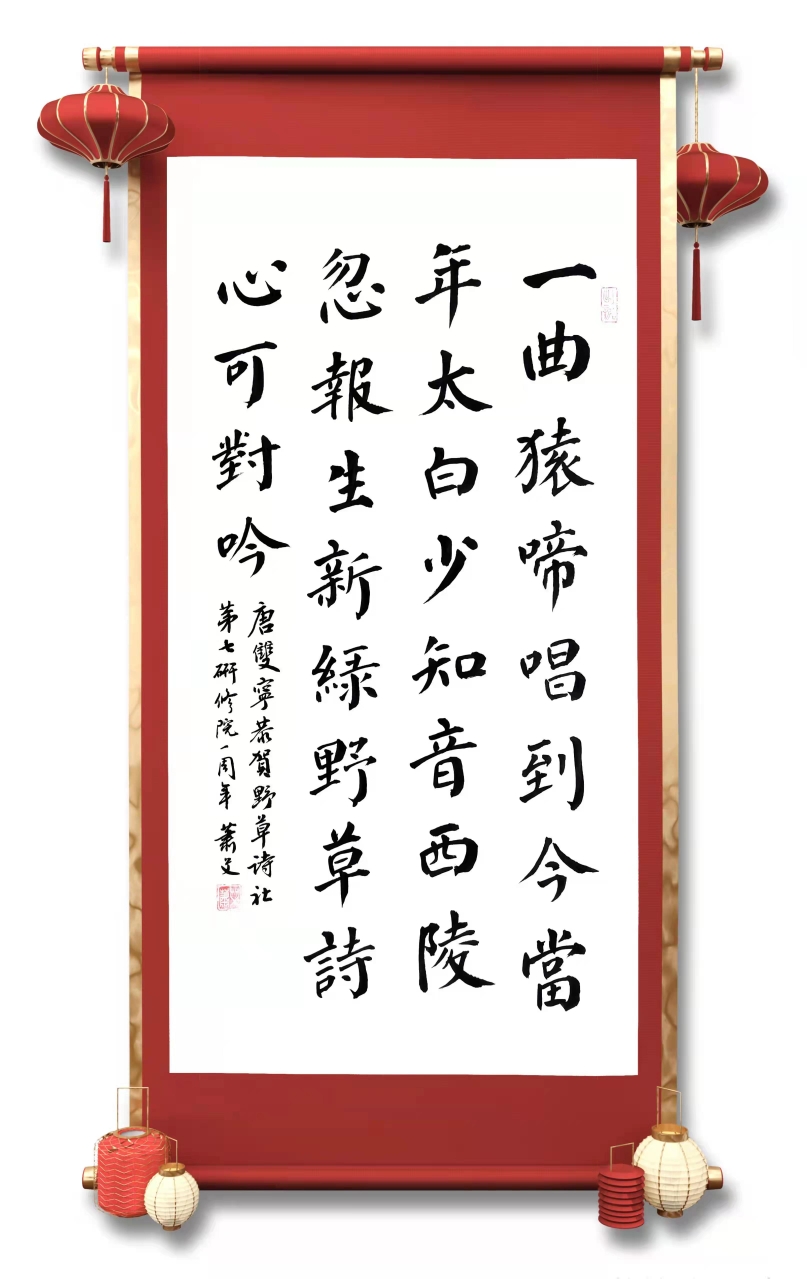 一曲猿啼唱到今當
年太白少知音西陵
忽報生新綠野草詩
心可對吟
唐雙寧恭賀野草诗社
第七研修院一周年 蕭文